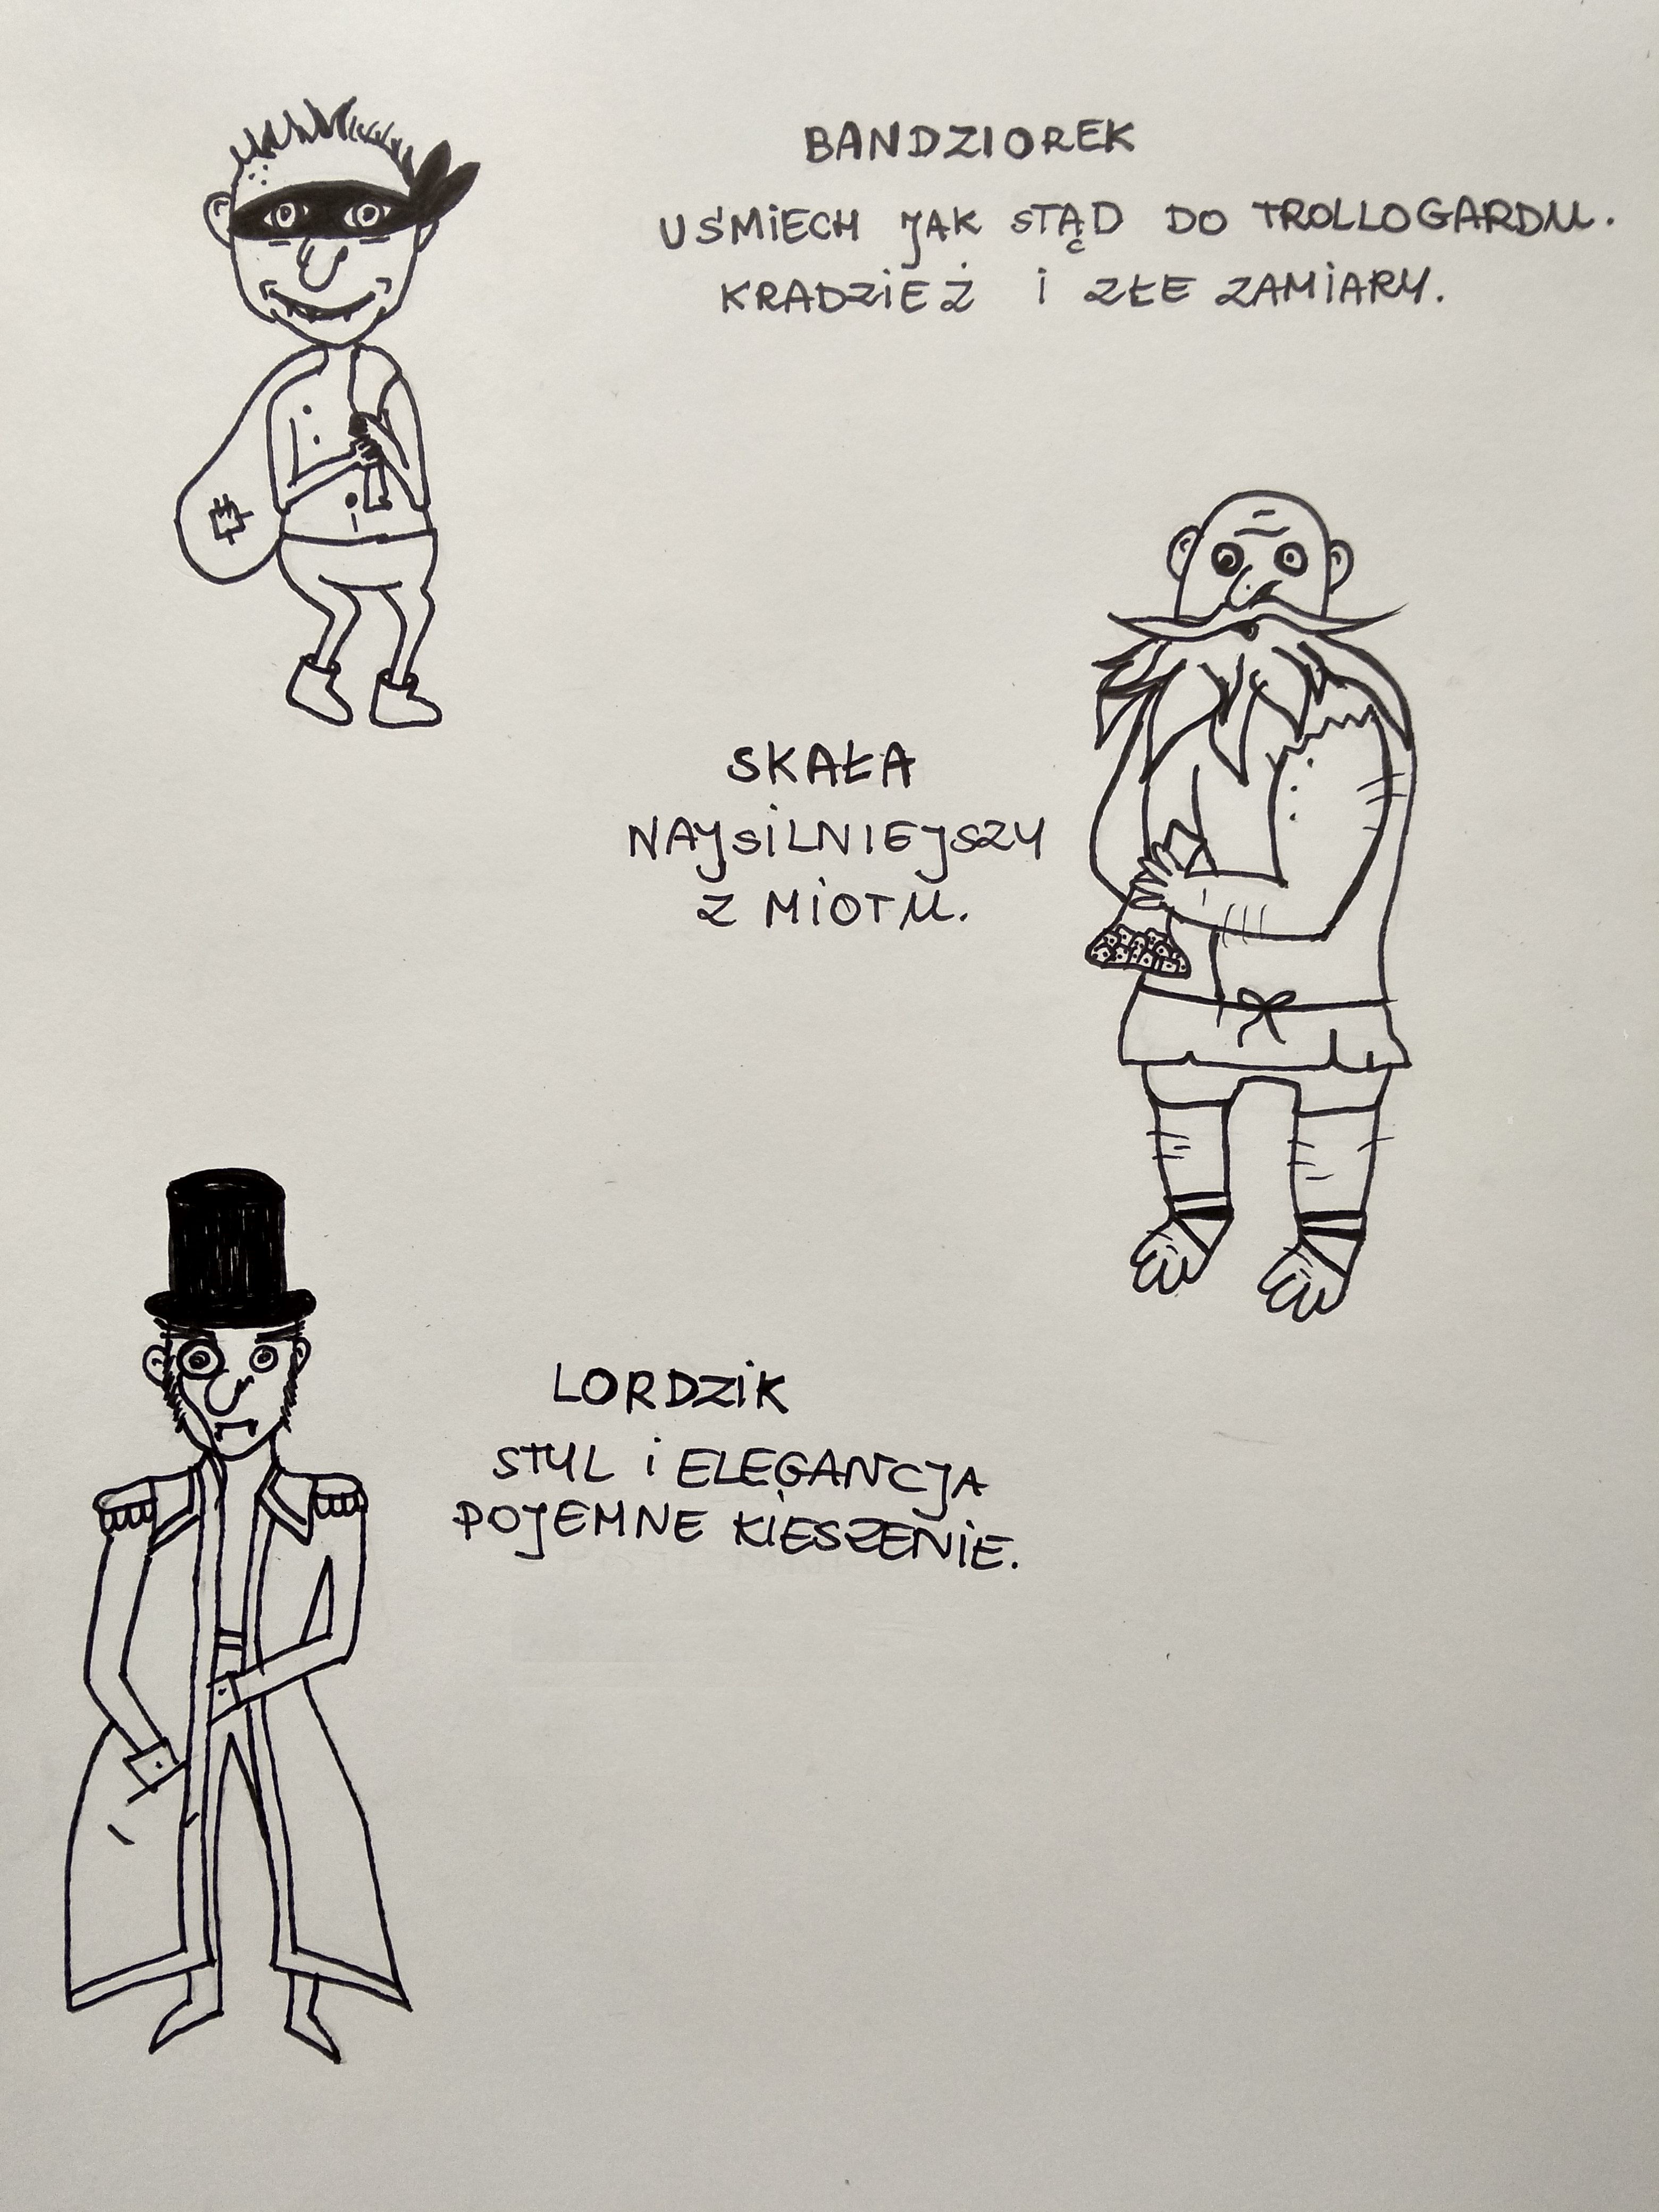 BANDZIOREK
UŚMIECH JAK STĄD DO TROLLOGARDU.
KRADZIEŻ I ZŁE ZAMIARY.
SKAŁA
NAJSILNIEJSZY
Z MIOTU.
LORDZIK
STYL I ELEGANCJA
POJEMNE KIESZENIE.